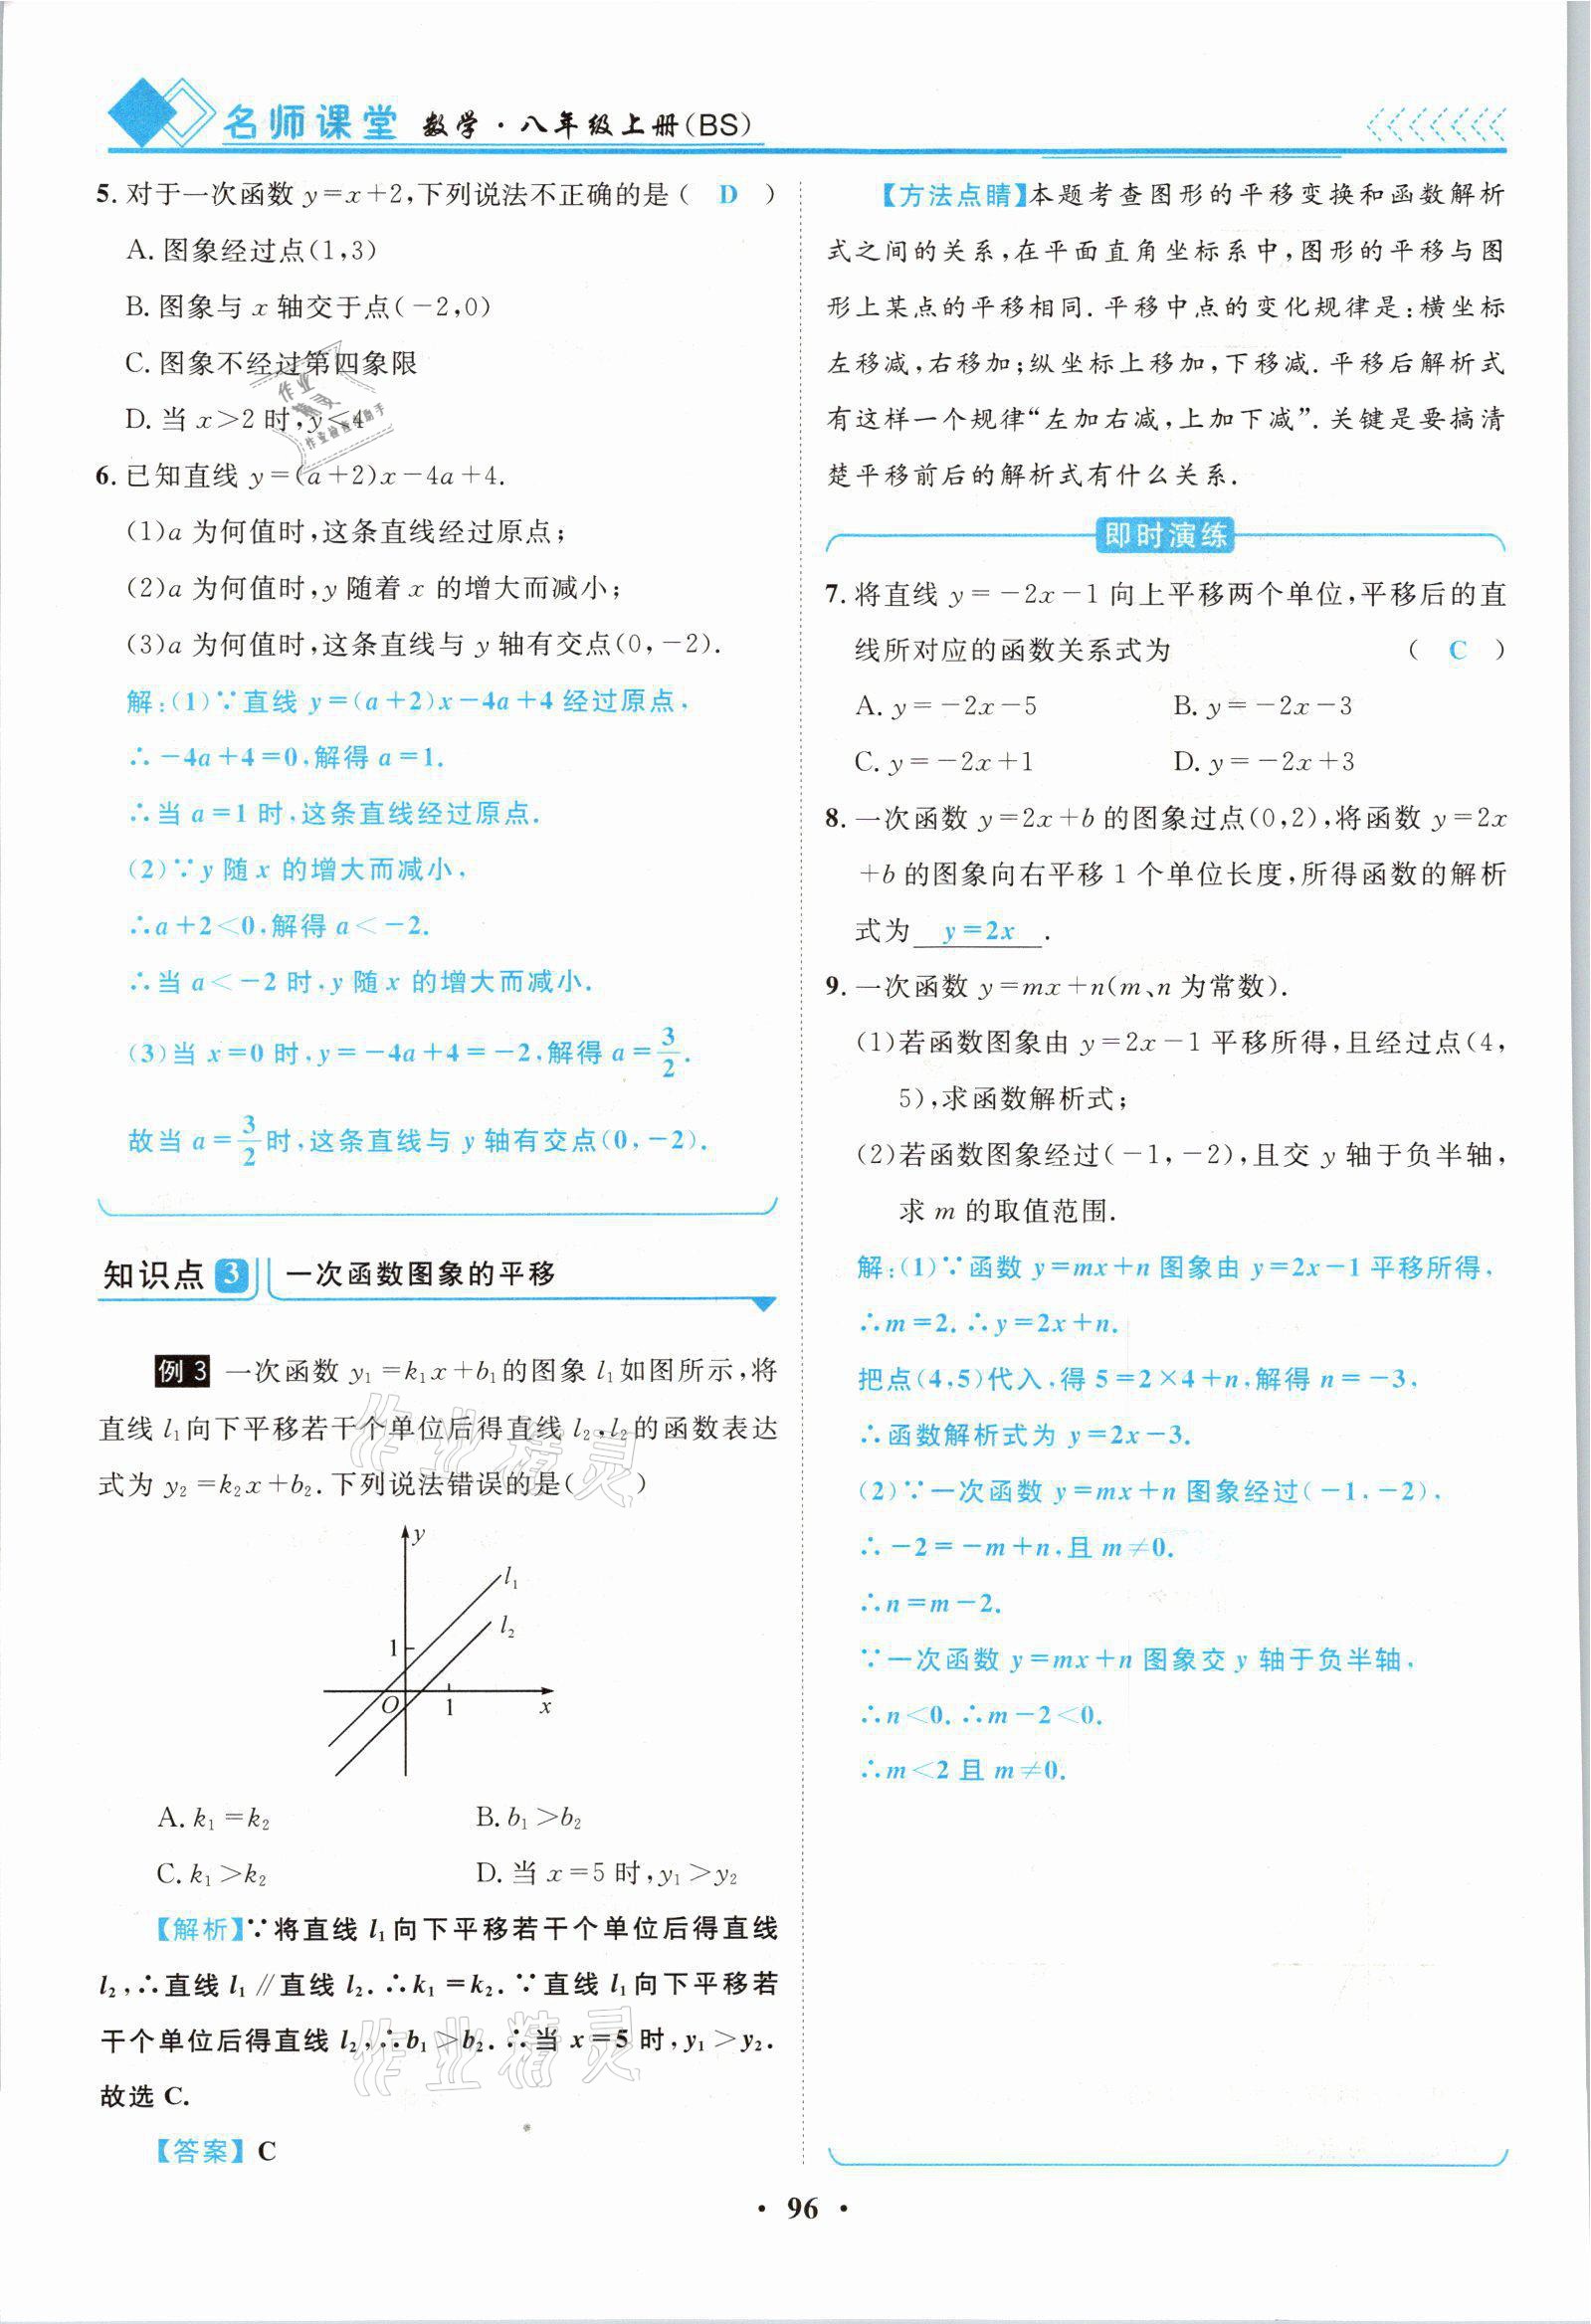 名师课堂 数学·八年级上册(BS)
5. 对于一次函数 y=x+2,下列说法不正确的是( D )
A. 图象经过点(1,3)
B. 图象与 x 轴交于点(-2,0)
C. 图象不经过第四象限
D. 当 x>2 时,y<4
6. 已知直线 y=(a+2)x-4a+4.
(1)a 为何值时,这条直线经过原点;
(2)a 为何值时,y 随着 x 的增大而减小;
(3)a 为何值时,这条直线与 y 轴有交点(0,-2).
解:(1)∵直线 y=(a+2)x-4a+4 经过原点,
∴-4a+4=0,解得 a=1.
∴当 a=1 时,这条直线经过原点.
(2)∵y 随 x 的增大而减小,
∴a+2<0,解得 a<-2.
∴当 a<-2 时,y 随 x 的增大而减小.
(3)当 x=0 时,y=-4a+4=-2,解得 a=3/2.
故当 a=3/2时,这条直线与 y 轴有交点(0,-2).
知识点 3 一次函数图象的平移
例 3 一次函数 y₁=k₁x+b₁的图象 l₁如图所示,将
直线 l₁向下平移若干个单位后得直线 l₂,l₂的函数表达
式为 y₂=k₂x+b₂.下列说法错误的是( )
y
l₁
l₂
1
O
1
x
A. k₁=k₂ B. b₁>b₂
C. k₁>k₂ D. 当 x=5 时,y₁>y₂
【解析】∵将直线 l₁向下平移若干个单位后得直线
l₂,∴直线 l₁∥直线 l₂.∴k₁=k₂.∵直线 l₁向下平移若
干个单位后得直线 l₂,∴b₁>b₂.∴当 x=5 时,y₁>y₂.
故选 C.
【答案】C
【方法点睛】本题考查图形的平移变换和函数解析
式之间的关系,在平面直角坐标系中,图形的平移与图
形上某点的平移相同.平移中点的变化规律是:横坐标
左移减,右移加;纵坐标上移加,下移减.平移后解析式
有这样一个规律“左加右减,上加下减”.关键是要搞清
楚平移前后的解析式有什么关系.
即时演练
7. 将直线 y=-2x-1 向上平移两个单位,平移后的直
线所对应的函数关系式为 ( C )
A. y=-2x-5 B. y=-2x-3
C. y=-2x+1 D. y=-2x+3
8. 一次函数 y=2x+b 的图象过点(0,2),将函数 y=2x
+b 的图象向右平移 1 个单位长度,所得函数的解析
式为 y=2x .
9. 一次函数 y=mx+n(m、n 为常数).
(1)若函数图象由 y=2x-1 平移所得,且经过点(4,
5),求函数解析式;
(2)若函数图象经过(-1,-2),且交 y 轴于负半轴,
求 m 的取值范围.
解:(1)∵函数 y=mx+n 图象由 y=2x-1 平移所得,
∴m=2.∴y=2x+n.
把点(4,5)代入,得 5=2×4+n,解得 n=-3,
∴函数解析式为 y=2x-3.
(2)∵一次函数 y=mx+n 图象经过(-1,-2),
∴-2=-m+n,且 m≠0.
∴n=m-2.
∵一次函数 y=mx+n 图象交 y 轴于负半轴,
∴n<0.∴m-2<0.
∴m<2 且 m≠0.
作业精灵
作业精灵
· 96 ·